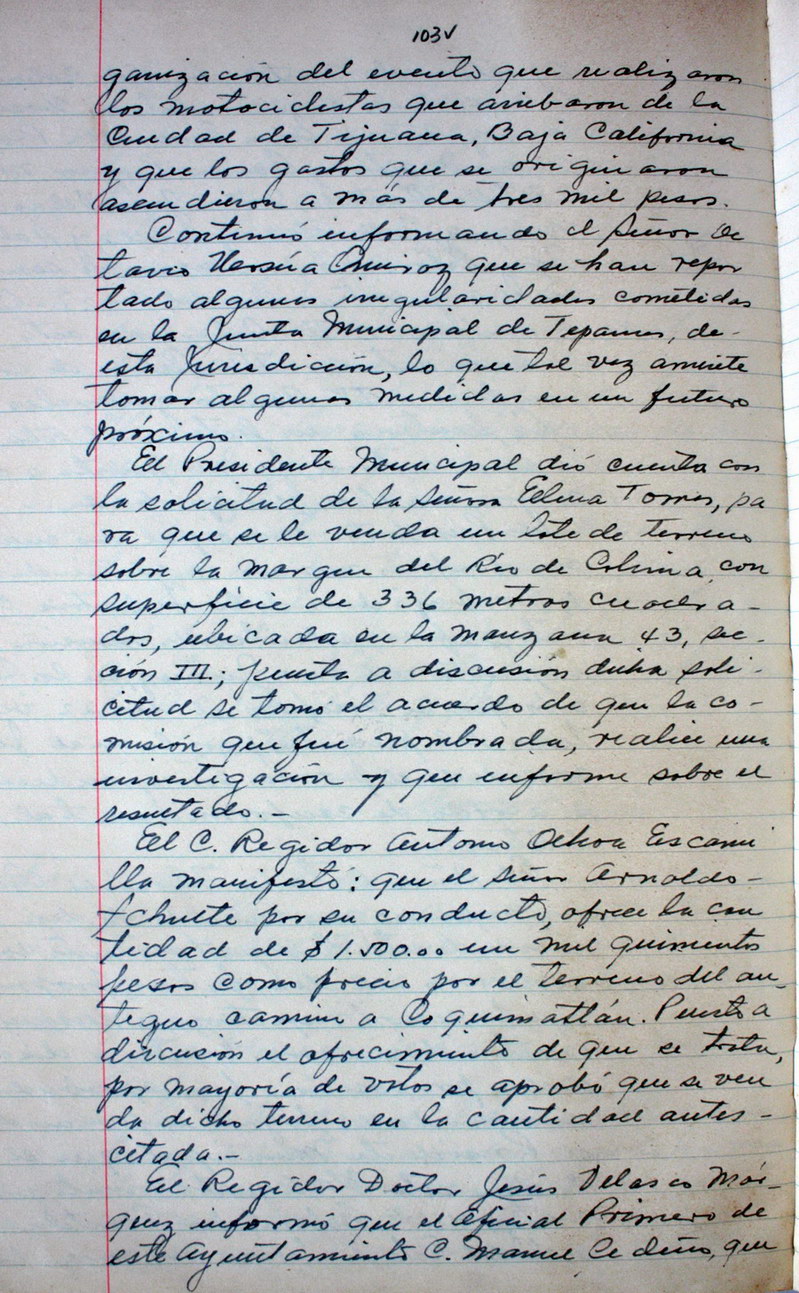 103v
ganización del evento que realizaron
los motociclistas que arribaron de la
Ciudad de Tijuana, Baja California
y que los gastos que se originaron
ascendieron a más de tres mil pesos.
Continuó informando el Señor Oc
tavio Ursúa Quiroz que se han repor
tado algunas irregularidades cometidas
en la Junta Municipal de Tepames, de-
esta Jurisdicción, lo que tal vez amerite
tomar algunas medidas en un futuro
próximo.
El Presidente Municipal dió cuenta con
la solicitud de la Señora Elena Torres, pa
ra que se le venda un lote de terreno
sobre la margen del Río de Colima, con
superficie de 336 metros cuadra-
dos, ubicada en la manzana 43, sec-
ción III; puesta a discusión dicha soli-
citud se tomó el acuerdo de que la co-
misión que fué nombrada, realice una
investigación y que informe sobre el
resultado.-
El C. Regidor Antonio Ochoa Escami
lla manifestó: que el Señor Arnoldo-
por su conducto, ofrece la can
tidad de $1.500.00 un mil quinientos
pesos como precio por el terreno del an-
tiguo camino a Coquimatlán. Puesto a
discusión el ofrecimiento de que se trata,
por mayoría de votos se aprobó que se ven
da dicho terreno en la cantidad antes-
citada.-
El Regidor Doctor Jesús Velasco Már-
quez informó que el Oficial Primero de
este Ayuntamiento C. Manuel Cedeño, que